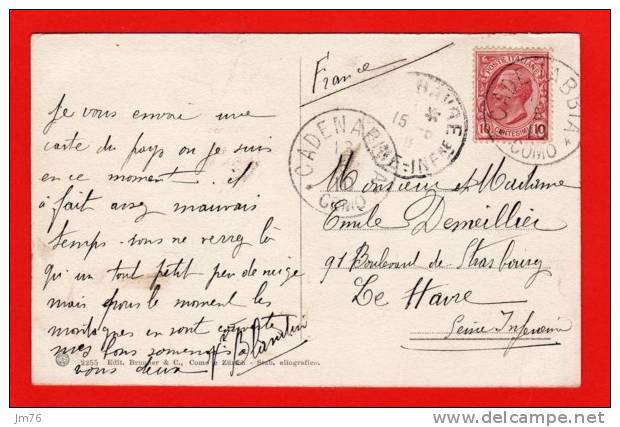 France
Je vous envoie une
carte du pays ou je suis
en ce moment. il
à fait assez mauvais
temps. vous ne verrez là
qu'un tout petit peu de neige
mais pour le moment les
montagnes en sont couverte
mes bons
vous deux
Blandin
Monsieur et Madame
Emile Demeillier
91 Boulevard de Strasbourg
Le Havre
Seine Inférieure
POSTE ITALIANE
10 CENTESIMI 10
CADENABBIA
* COMO *
HAVRE
15
CADENABBIA
* COMO
2255 Edit. Brunner & C., Como e Zürich - Stab. eliografico.
jm76
delcampe.net